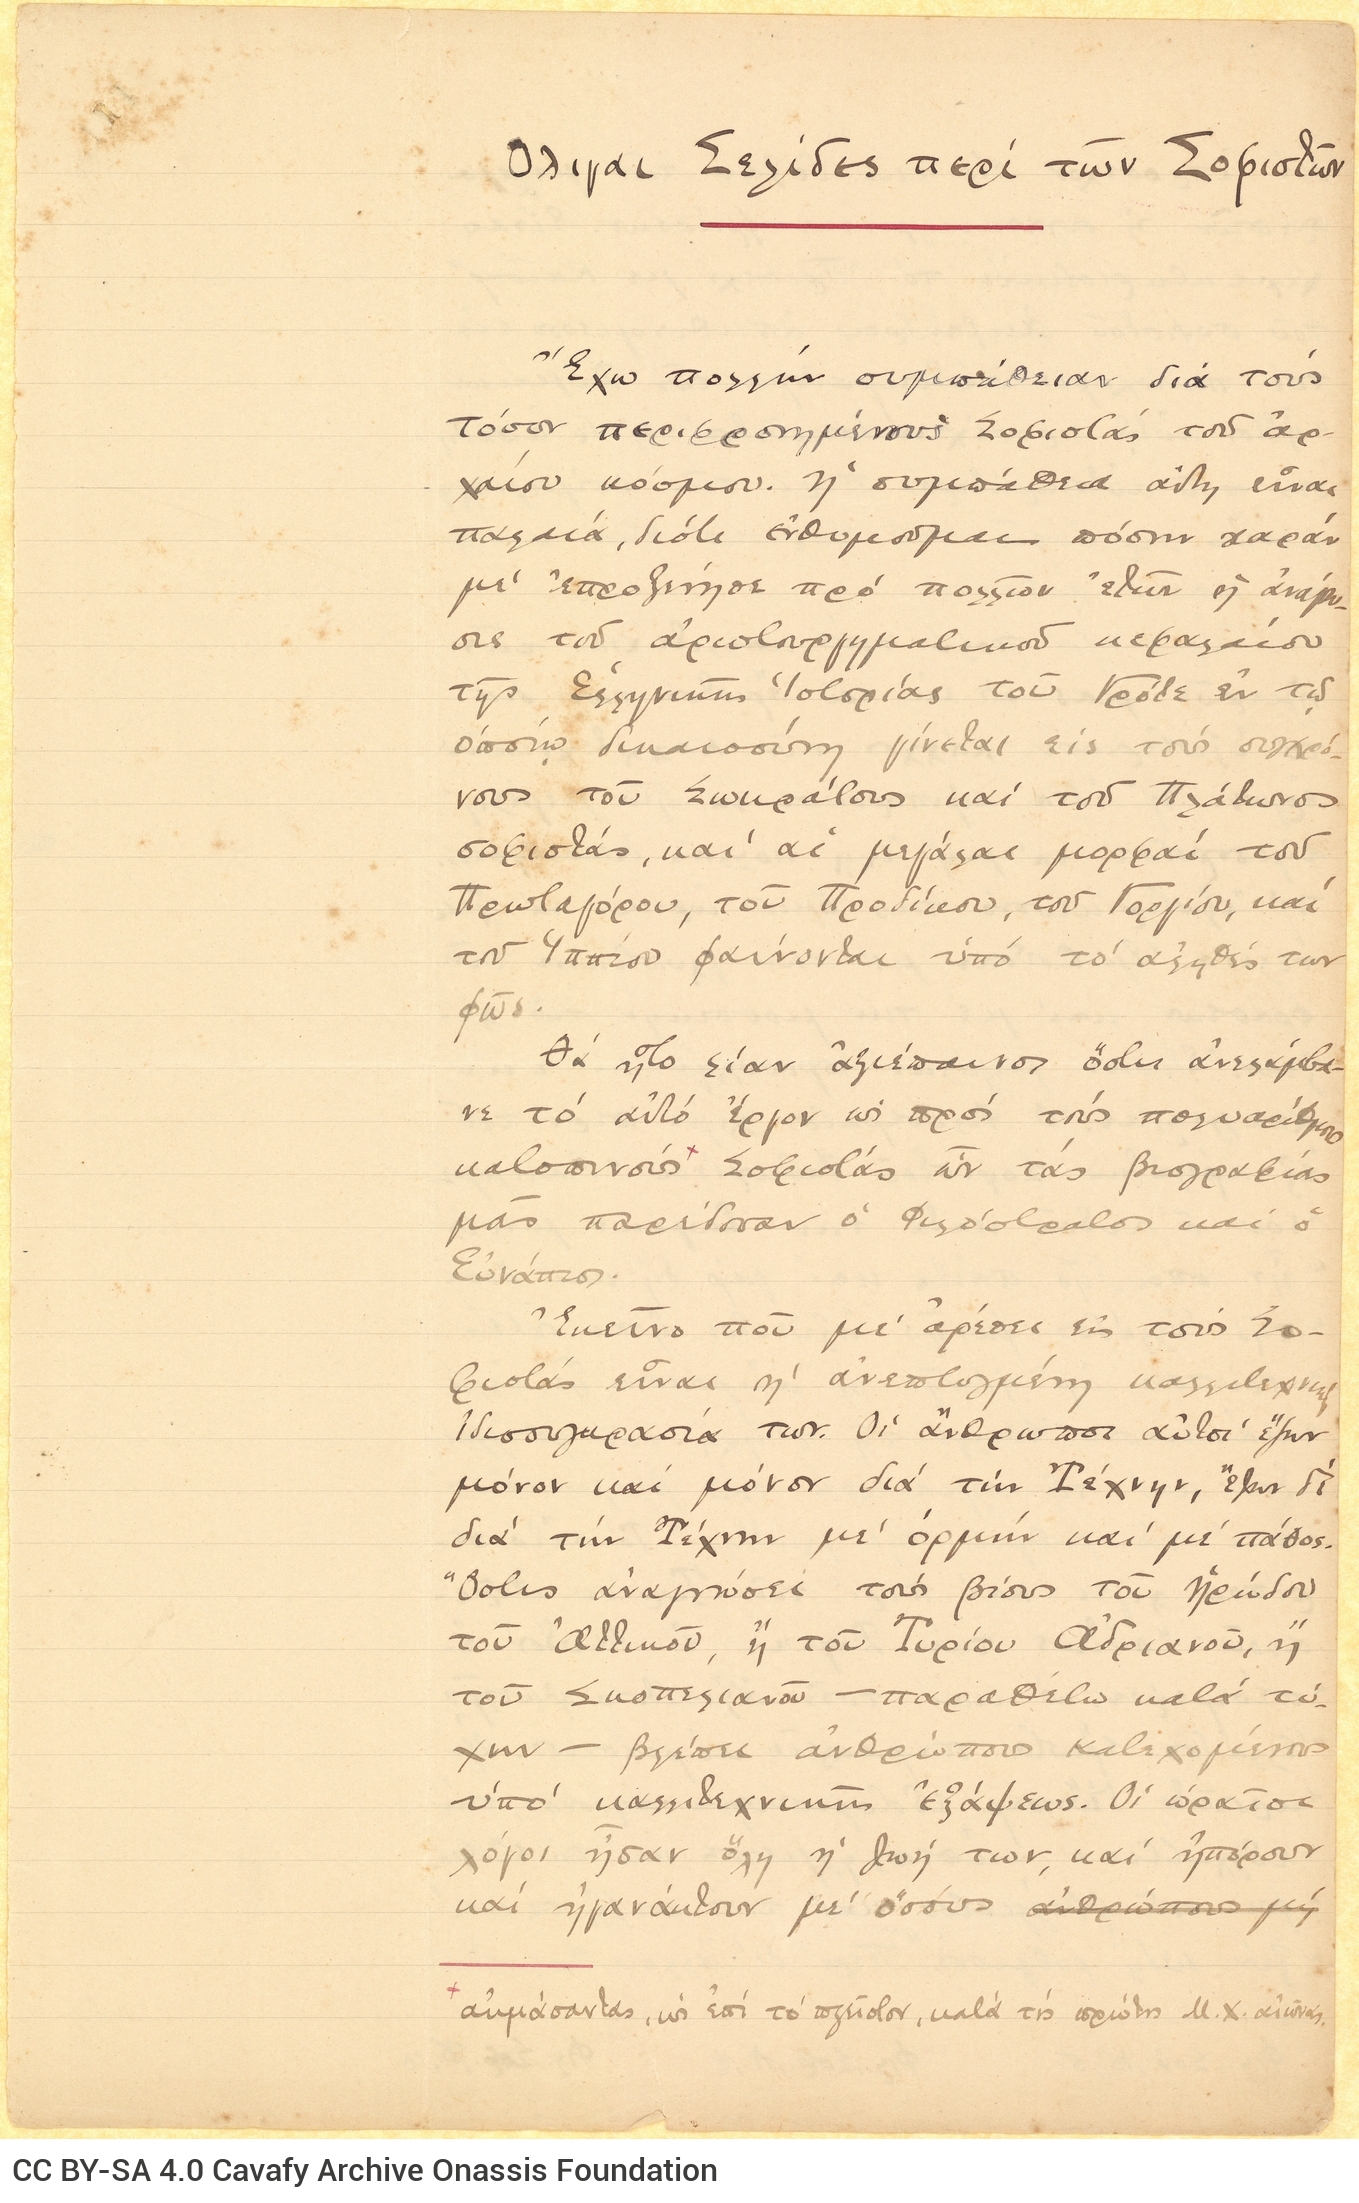 Ολιγαι Σελίδες περί τῶν Σοφιστῶν
Ἔχω πολλήν συμπάθειαν διά τούς
τόσον περιφρονημένους Σοφιστάς τοῦ ἀρ-
χαίου κόσμου. Ἡ συμπάθεια αὐτη εἶναι
παλαιά, διότι ἐνθυμοῦμαι πόσην χαράν
μέ ἐπροξένησε πρό πολλῶν ἐτῶν ἡ ἀνάγνω-
σις τοῦ ἀριστουργηματικοῦ κεφαλαίου
τῆς Ἑλληνικῆς Ἱστορίας τοῦ Γρότε ἐν τῷ
ὁποίῳ δικαιοσύνη γίνεται εἰς τούς συγχρό-
νους τοῦ Σωκράτους καί τοῦ Πλάτωνος
σοφιστάς, καί αἱ μεγάλαι μορφαί τοῦ
Πρωταγόρου, τοῦ Προδίκου, τοῦ Γοργίου, καί
τοῦ Ἱππίου φαίνονται ὑπό τό ἀληθές των
φῶς.
Θά ἦτο λίαν ἀξιέπαινος ὅστις ἀνελάμβα-
νε τό αὐτό ἔργον ὡς πρός τούς πολυαρίθμους
κατοπινούς+ Σοφιστάς ὧν τάς βιογραφίας
μᾶς παρέδοσαν ὁ Φιλόστρατος καί ὁ
Εὐνάπιος.
Ἐκεῖνο ποῦ μέ ἀρέσει εἰς τούς Σο-
φιστάς εἶναι ἡ ἀνεπτυγμένη καλλιτεχνική
ἰδιοσυγκρασία των. Οἱ ἄνθρωποι αὐτοί ἔζων
μόνον καί μόνον διά τήν Τέχνην, ἔζων δέ
διά τήν Τέχνην μέ ὁρμήν καί μέ πάθος.
Ὅστις ἀναγνώσει τούς βίους τοῦ Ἡρώδου
τοῦ Ἀττικοῦ, ἤ τοῦ Τυρίου Ἀδριανοῦ, ἤ
τοῦ Σκοπελιανοῦ — παραθέτω κατά τύ-
χην — βλέπει ἀνθρώπους κατεχομένους
ὑπό καλλιτεχνικῆς ἐξάψεως. Οἱ ὡραῖοι
λόγοι ἦσαν ὅλη ἡ ζωή των, καί ἠπόρουν
καί ἠγανάκτουν μέ ὅσους ἀνθρώπους μή
+ ἀκμάσαντας, ὡς ἐπί τό πλεῖστον, κατά τούς πρώτους Μ.Χ. αἰῶνας.
CC BY-SA 4.0 Cavafy Archive Onassis Foundation